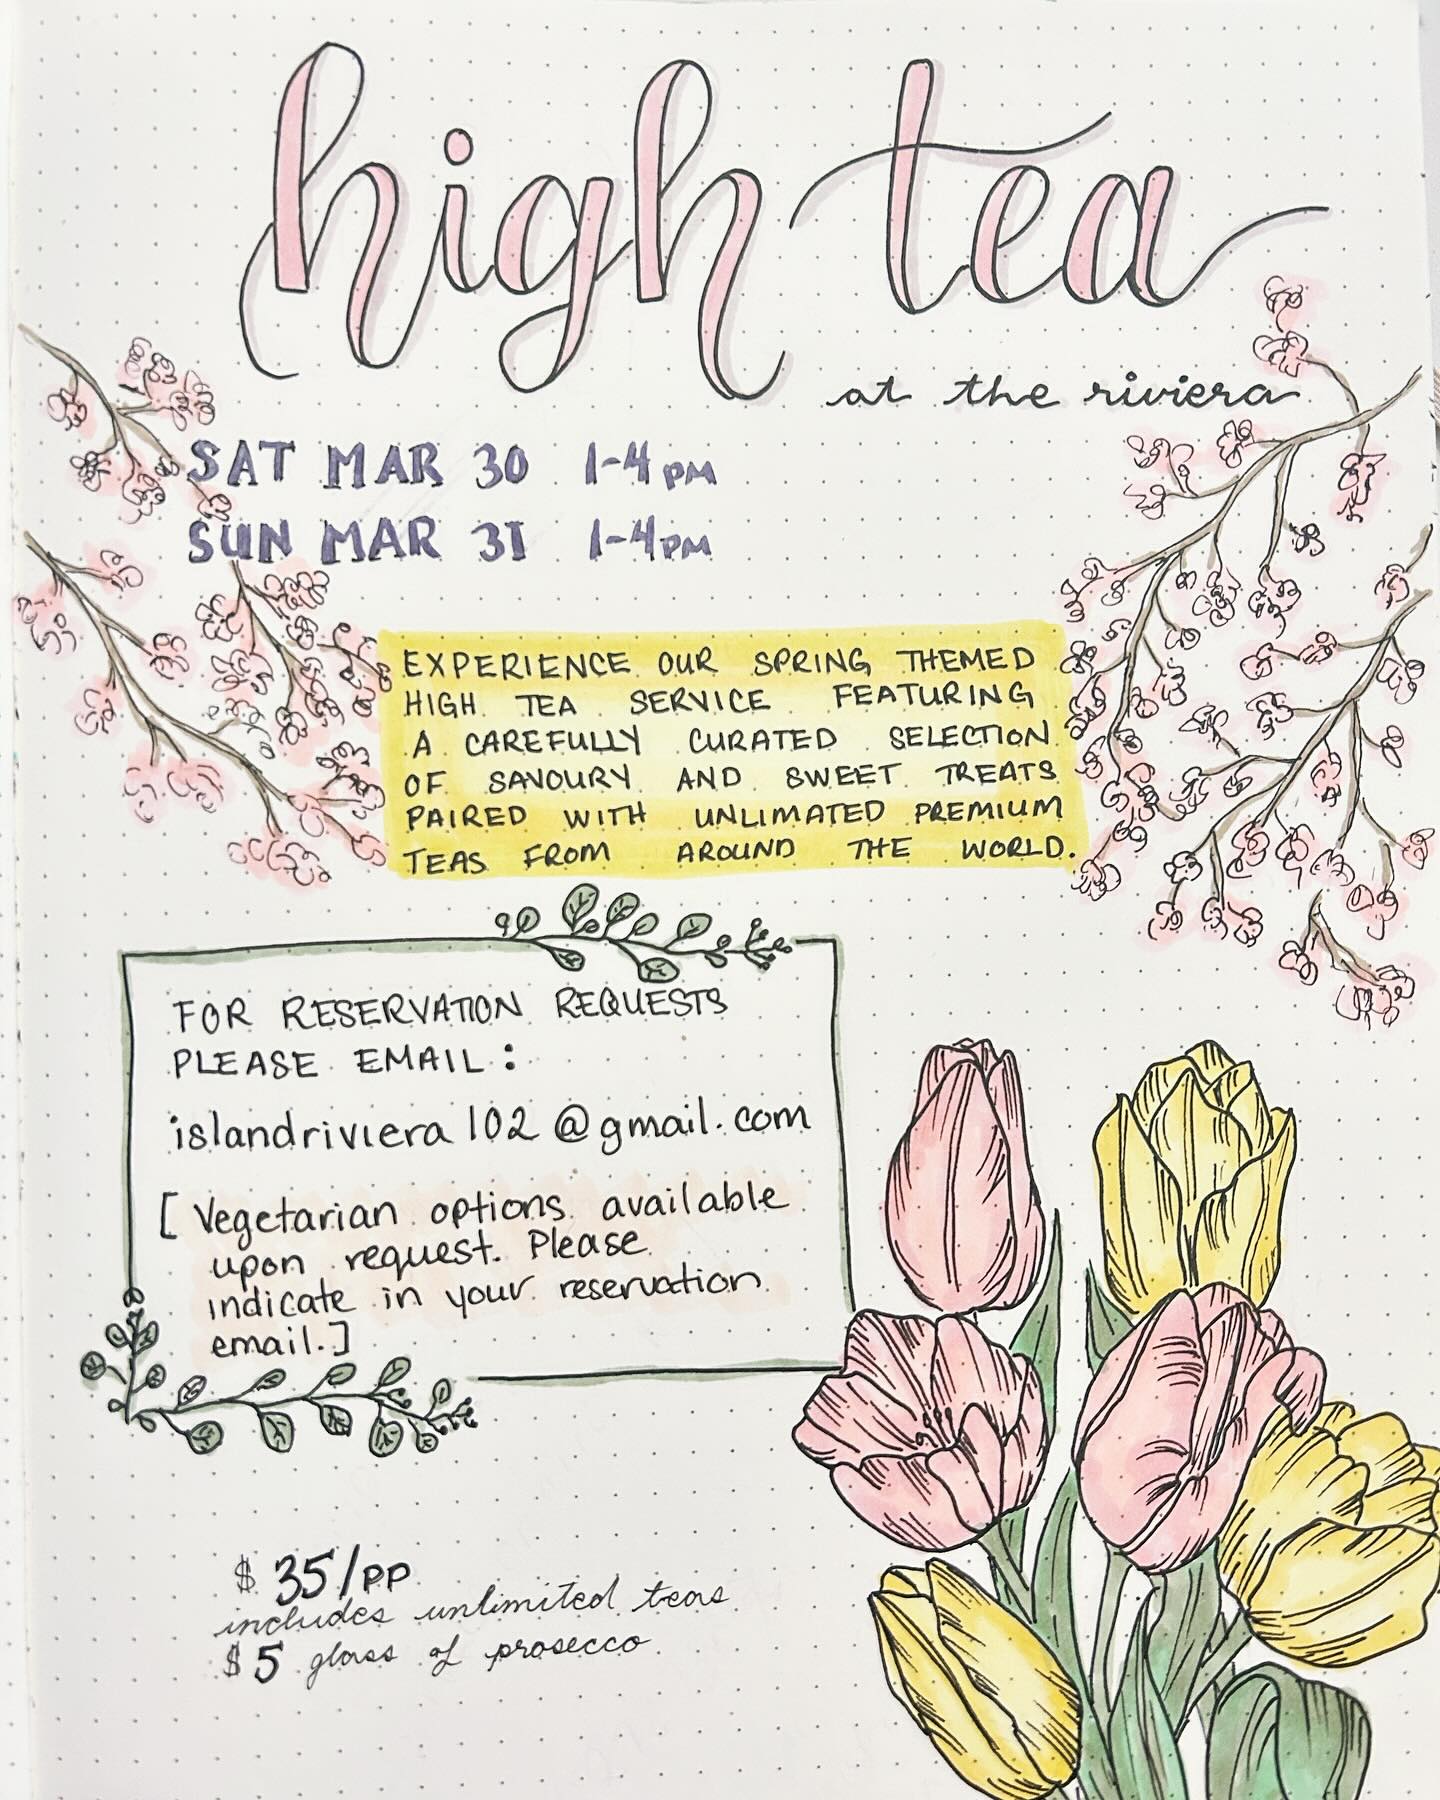 high tea
at the riviera
SAT MAR 30 1-4 PM
SUN MAR 31 1-4 PM
EXPERIENCE OUR SPRING THEMED
HIGH TEA SERVICE FEATURING
A CAREFULLY CURATED SELECTION
OF SAVOURY AND SWEET TREATS
PAIRED WITH UNLIMATED PREMIUM
TEAS FROM AROUND THE WORLD.
FOR RESERVATION REQUESTS
PLEASE EMAIL:
islandriviera102@gmail.com
[Vegetarian options available
upon request. Please
indicate in your reservation
email.]
$35/PP
includes unlimited teas
$5 glass of prosecco